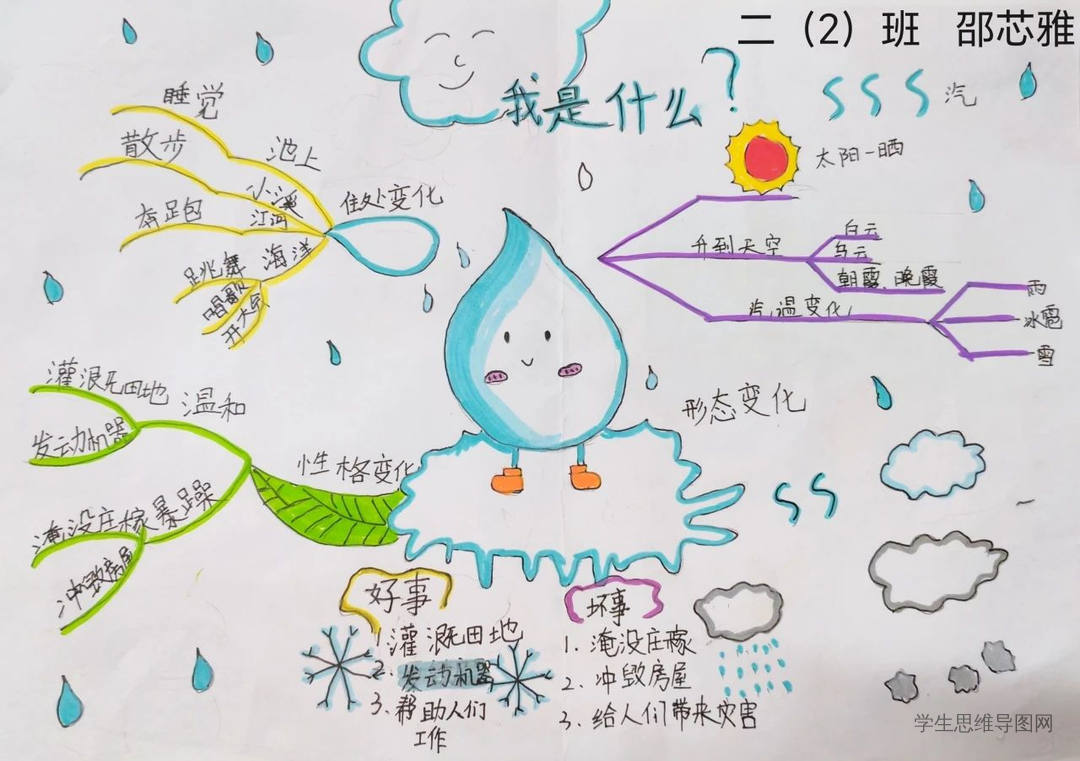 二（2）班 邵芯雅
我是什么？
汽
太阳一晒
睡觉
散步
池上
小溪
江河
奔足包
海洋
跳舞
唱歌
开大会
住处变化
升到天空
白云
乌云
朝霞、晚霞
汽温变化
雨
冰雹
雪
形态变化
灌溉田地
温和
发动机器
性格变化
淹没庄稼
暴躁
冲毁房屋
好事
1.灌溉田地
2.发动机器
3、帮助人们
工作
坏事
1.淹没庄稼
2.冲毁房屋
3.给人们带来灾害
学生思维导图网